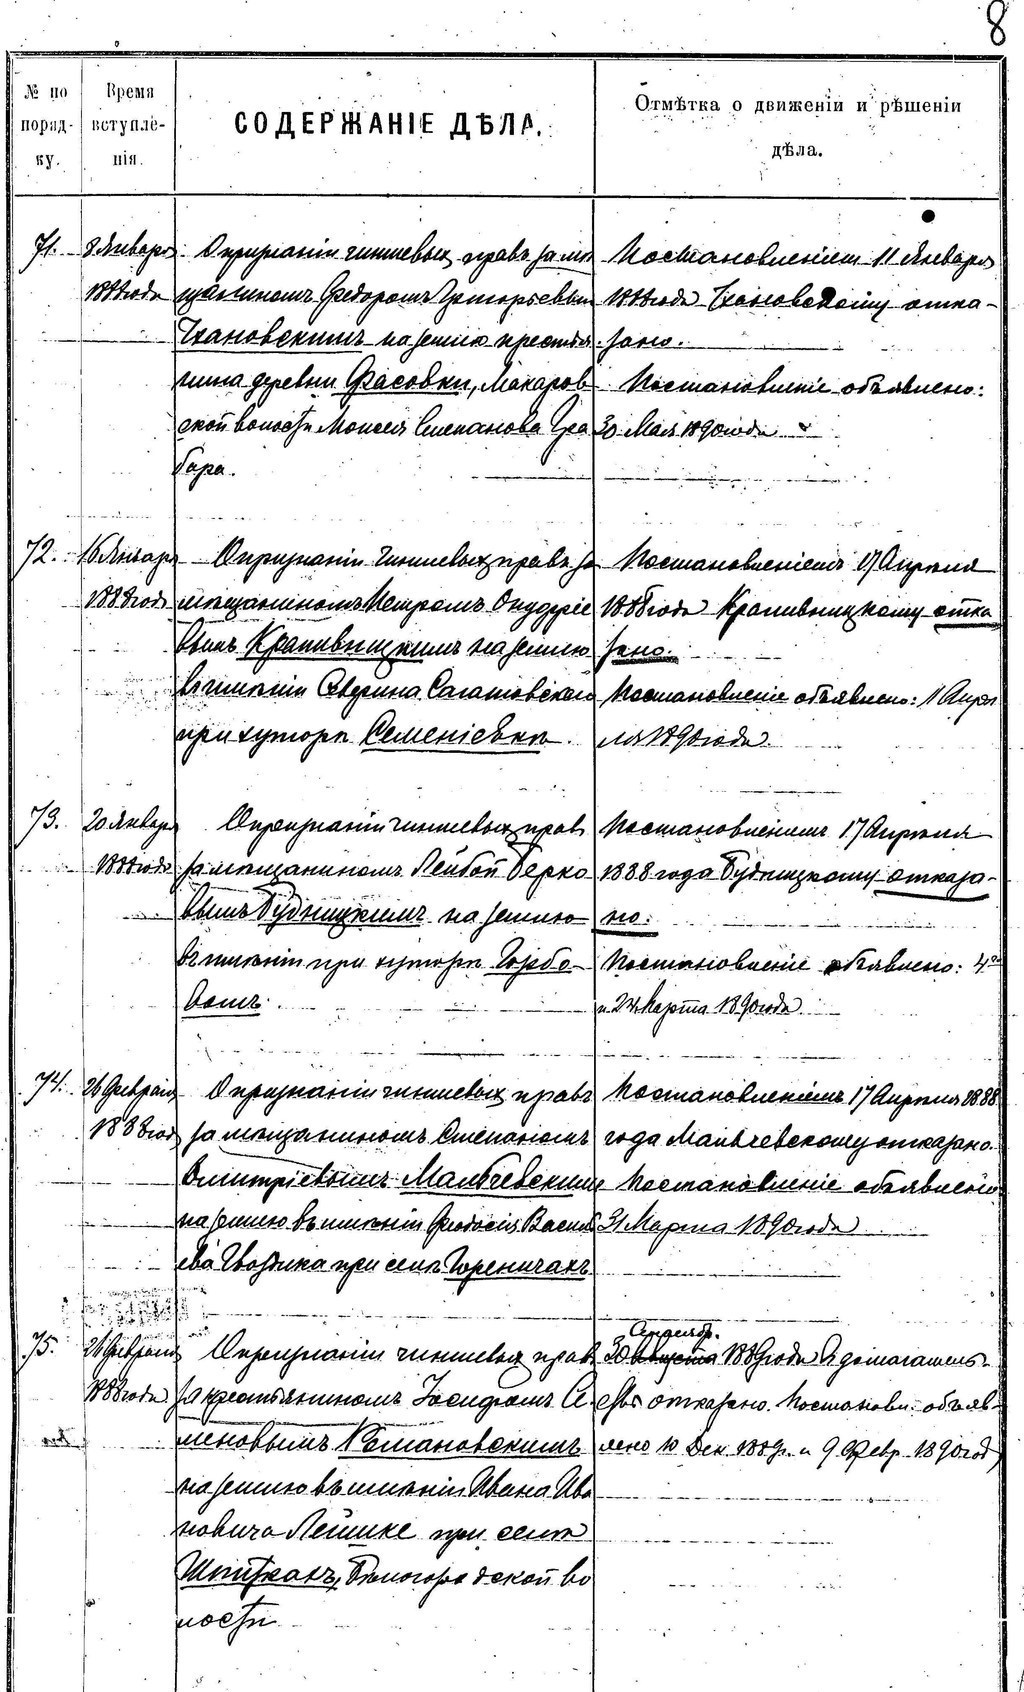 8
№ по
поряд-
ку.
Время
вступле-
нія.
СОДЕРЖАНІЕ ДѢЛА.
Отмѣтка о движеніи и рѣшеніи
дѣла.
71.
8 Января
1888 года
О признаніи чиншевыхъ правъ за мѣ
щаниномъ Федоромъ Григорьевымъ
Чхановскимъ на землю крестья
нина деревни Фасовки, Макаров
ской волости Моисея Степанова Гра
баря.
Постановленіемъ 11 Января
1888 года Чхановскому отка-
зано.
Постановленіе объявлено:
30 Мая 1890 года
72.
16 Января
1888 года
О признаніи чиншевыхъ правъ за
мѣщаниномъ Петромъ Онуфріе
вымъ Крапивницкимъ на землю
въ имѣніи Северина Сагатовскаго
при хуторѣ Семеніевкѣ.
Постановленіемъ 17 Апрѣля
1888 года Крапивницкому отка
зано.
Постановленіе объявлено: 11 Апрѣ
ля 1890 года.
73.
20 Января
1888 года
О признаніи чиншевыхъ правъ
за мѣщаниномъ Лейбой Берко
вымъ Будницкимъ на землю
въ имѣніи при хуторѣ Горбо
Постановленіемъ 17 Апрѣля
1888 года Будницкому отказа-
но.
Постановленіе объявлено: 4го
и 24 Марта 1890 года.
74.
26 Февраля
1888 год
О признаніи чиншевыхъ правъ
за мѣщаниномъ Степаномъ
Дмитріевымъ Мальчевскимъ
на землю въ имѣніи Феодосія Василь
ева Гвоздика при селѣ Гореничахъ.
Постановленіемъ 17 Апрѣля 1888
года Мальчевскому отказано.
Постановленіе объявлено
31 Марта 1890 года
75.
26 Февраля
1888 года
О признаніи чиншевыхъ правъ
за крестьяниномъ Іосифомъ Се
меновымъ Романовскимъ
на землю въ имѣніи Ивана Ива
новича Лешике при селѣ
Шпитькахъ, Бѣлогородской во
лости
30 августа 1889 года въ домогатель-
ствѣ отказано. Постановл. объяв-
лено 10 Дек. 1889г. и 9 Февр. 1890 год